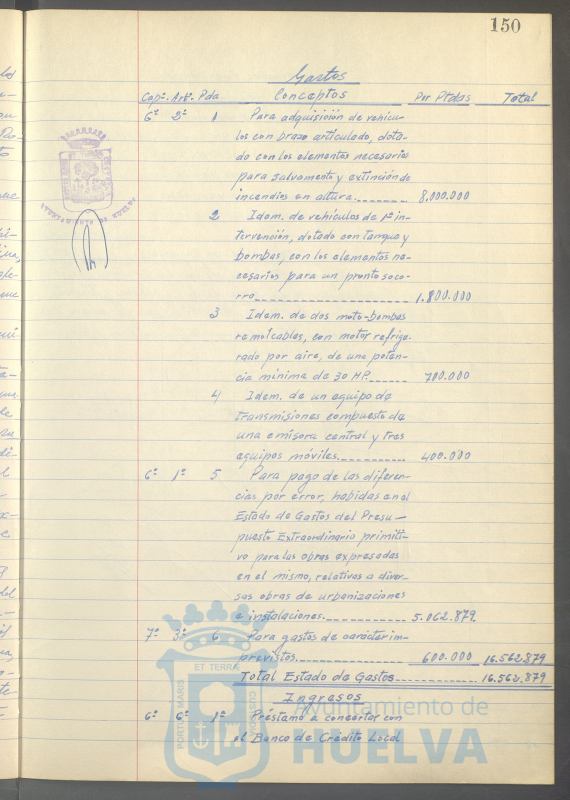 150
Gastos
Capº. Artº. Pda Conceptos Por Ptdas Total
6º 2º 1 Para adquisición de vehícu-
los con brazo articulado, dota-
do con los elementos necesarios
para salvamento y extinción de
incendios en altura. 8.000.000
2 Idem. de vehículos de 1ª in-
tervención, dotado con tanque y
bombas, con los elementos ne-
cesarios para un pronto soco-
rro 1.800.000
3 Idem. de dos moto-bombas
remolcables, con motor refrige-
rado por aire, de una poten-
cia mínima de 30 HP. 700.000
4 Idem. de un equipo de
transmisiones compuesto de
una emisora central y tres
equipos móviles. 400.000
6º 1º 5 Para pago de las diferen-
cias por error, habidas en el
Estado de Gastos del Presu-
puesto Extraordinario primiti-
vo para las obras expresadas
en el mismo, relativas a diver-
sas obras de urbanizaciones
e instalaciones. 5.062.879
7º 3º 6 Para gastos de carácter im-
previstos. 600.000 16.562.879
Total Estado de Gastos 16.562.879
Ingresos
6º 6º 1º Préstamo a concertar con
el Banco de Crédito Local
PORTUS MARIS ET TERRAE CUSTODIA
Ayuntamiento de
HUELVA